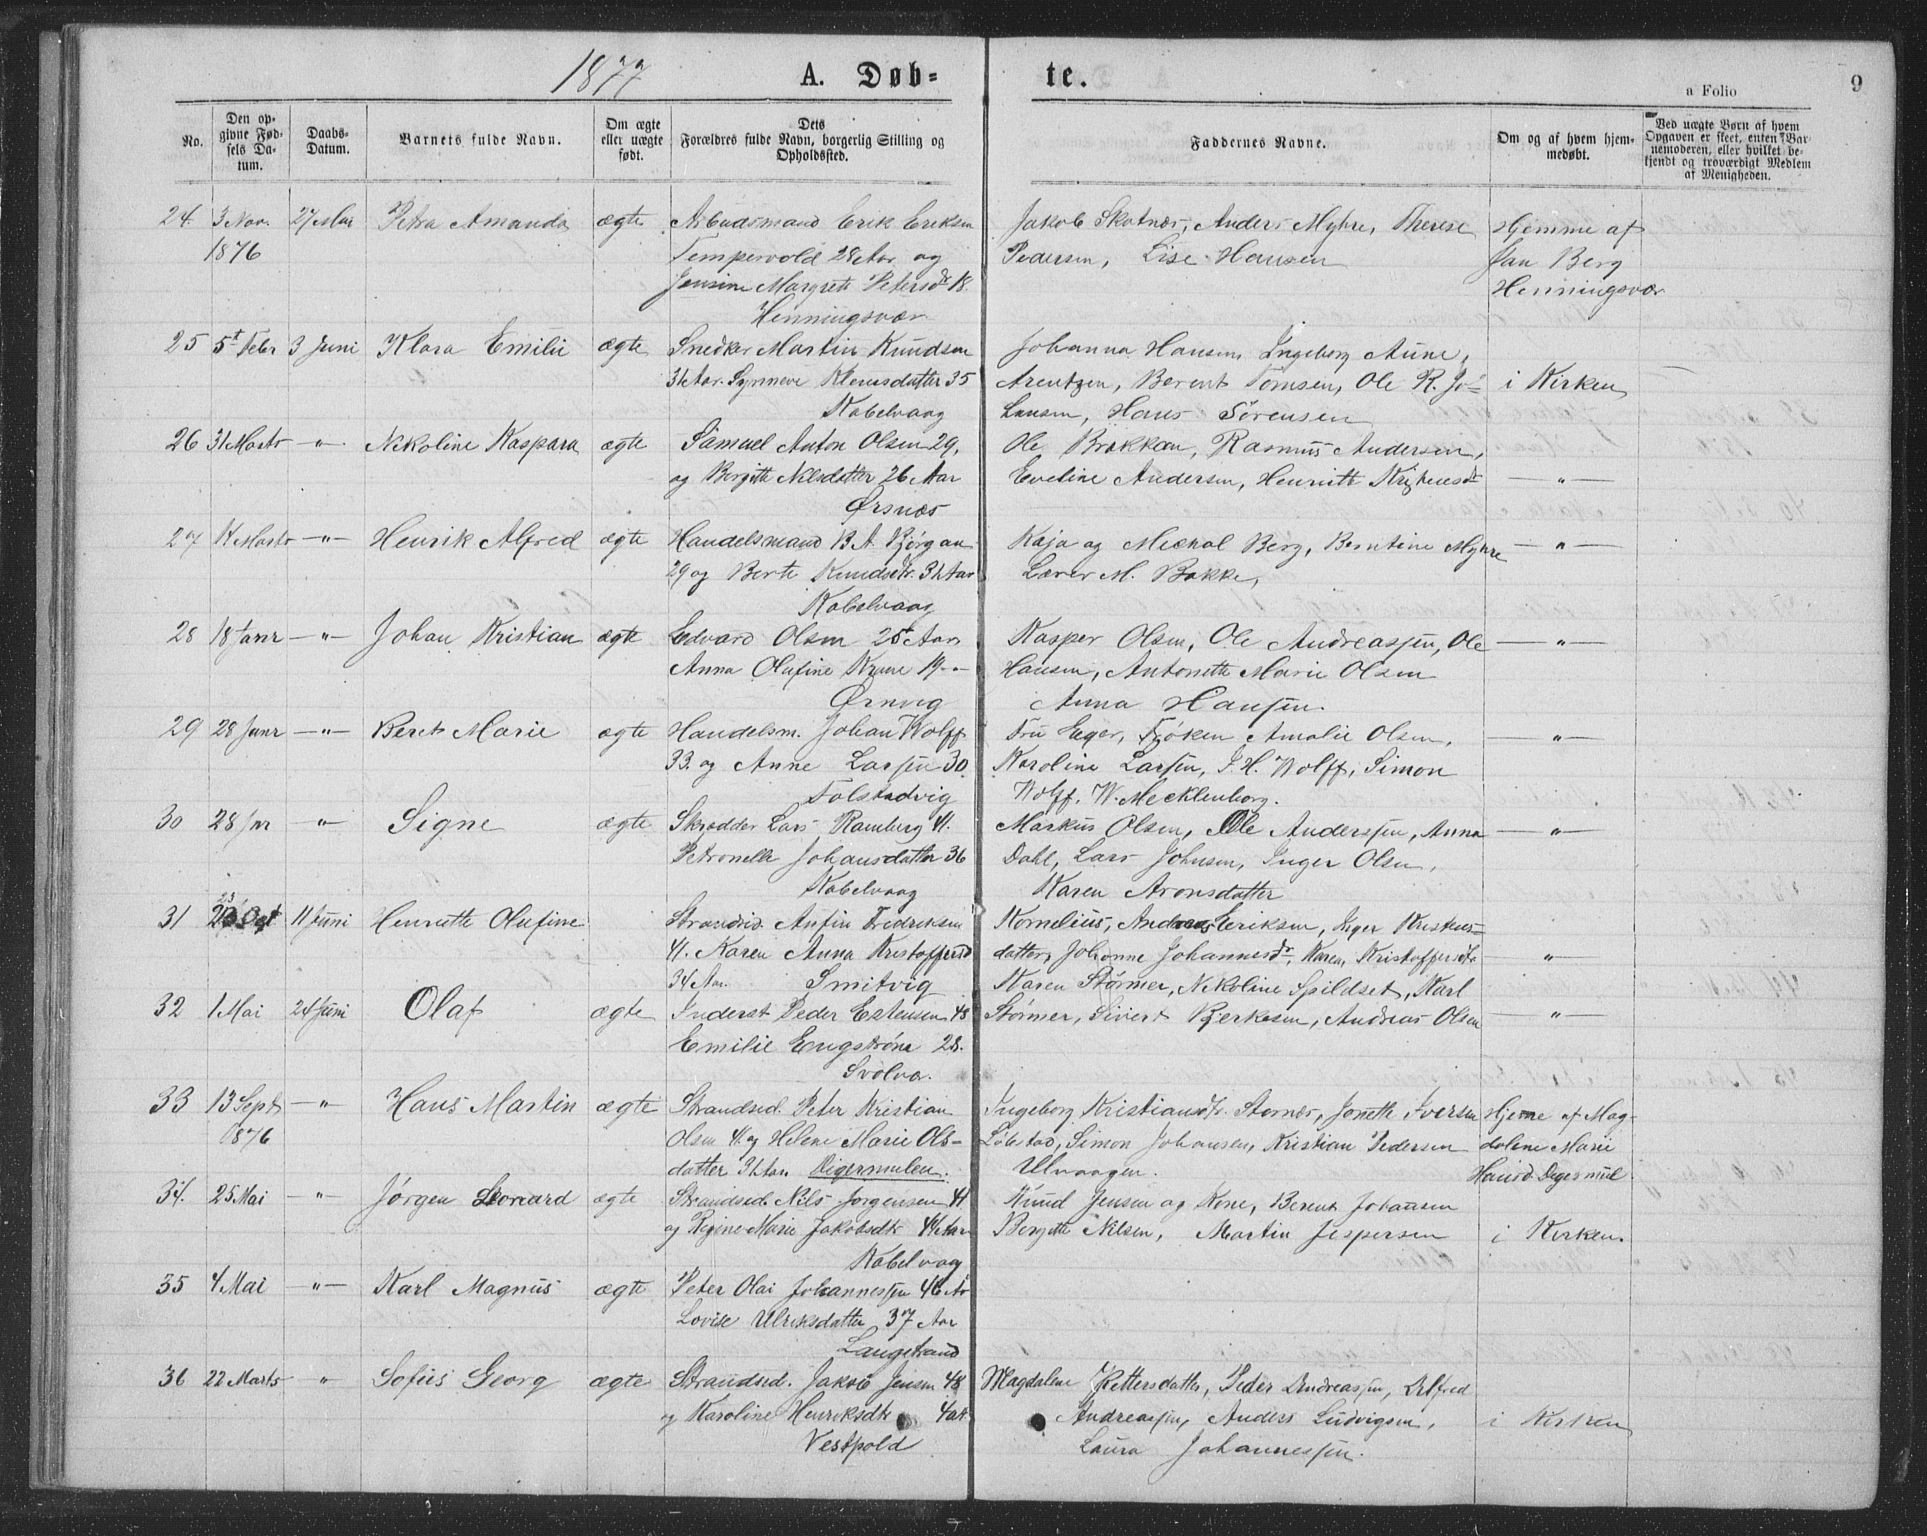 1877 A. Døb= te. a Folio 9
No. Den opgivne Fødsels Datum. Daabs-Datum. Barnets fulde Navn. Om ægte eller uægte født. Dets Forældres fulde Navn, borgerlig Stilling og Opholdssted. Faddernes Navne. Om og af hvem hjemmedøbt. Ved uægte Børn af hvem Opgaven er skeet, enten Barnemoderen, eller hvilket bekjendt og troværdigt Medlem af Menigheden.
24. 3 Nov. 27 Mai Petra Amanda ægte Arbeidsmand Erik Eriksen Jakob Skotnæs, Anders Myhre, Therese Hjemme af
1876 Tempervold 28 Aar og Pedersen, Lise Hansen Jan Berg
Jensine Margrete Petersdr 18. Henningsvær
Henningsvær
25 5t Febr 3 Juni Klara Emilie ægte Snedker Martin Knudsen Johanna Hansen, Ingeborg Aune,
31 Aar. Synneve Klemesdatter 35 Arentzen, Berent Tomsen, Ole R. Jo- i Kirken
Kabelvaag hansen, Hans Sørensen
26 31 Marts -"- Nikoline Kaspara ægte Samuel Anton Olsen 29, Ole Brekken, Rasmus Andersen,
og Bergitte Nilsdatter 26 Aar Eveline Andersen, Henriette -"-
Ørsnæs
27 14 Marts -"- Henrik Alfred ægte Handelsmand B. A. Bjørgan Kaja og Meckal Berg, Berntine Myhre -"-
29 og Berte Knudsdr. 31 Aar Lærer M. Bakke,
Kabelvaag
28 18 Janr -"- Johan Kristian ægte Edvard Olsen 25 Aar Kasper Olsen, Ole Andreassen, Ole -"-
Anna Olufine Krane 19 -"- Hansen, Antonette Marie Olsen
Ørnvig Anna Hansen.
29 28 Janr -"- Beret Marie ægte Handelsm. Johan Wolff Fru Eger, Frøken Amalie Olsen, -"-
33. og Anne Larsen 30. Karoline Larsen, J. H. Wolff, Simon
Folstadvig Wolff, W. Mecklenborg.
30 28 Jnr -"- Signe ægte Skrædder Lars Ramberg 41. Markus Olsen, Ole Anderssen, Anna -"-
Petronelle Johansdatter 36 Dahl, Lars Johnsen, Inger Olsen,
Kabelvaag Karen Aronsdatter
31 23 11 Juni Henriette Olufine Strandsid. Anfin Fredriksen Kornelius, Andreas Eriksen, Inger Kristens-
41. Karen Anna Kristoffersd datter, Johanne Johannesdr, Karen Kristoffersdr -"-
34 Aar. Smitvig Karen Størmer, Nikoline Spildset, Karl
32 1 Mai 24 Juni Olaf ægte Inderst Peder Estensen 48 Størmer, Sivert Bjerkesen, Andreas Olsen -"-
Emilie Engstrøm 28.
Svolvær.
33 13 Sept -"- Hans Martin ægte Strandsid. Peter Kristian Ingeborg Kristiansdr. Stornæs, Jonette Iversen Hjeme af Mag-
1876 Olsen 41. og Helene Marie Ols- Løbstad, Simon Johansen, Kristian Pedersen dalene Marie
datter 31 Aar. Digermulen. Ulvaagen. Hansd. Digermul
34. 25 Mai -"- Jørgen Leonard ægte Strandsid. Nils Jorgensen 41 Knud Jensen og Kone, Berent Johansen
og Regine Marie Jakobsdtr 44 Aar Bergitte Nilsen, Martin Jespersen i Kirken.
Kabelvaag
35 4 Mai -"- Karl Magnus ægte Peter Olai Johannessen 46 Ar
Lovise Ulriksdatter 37 Aar
Langstrand
36 22 Marts " Sofus Georg ægte Strandsid. Jakob Jensen 48 Magdalene Pettersdatter, Peder Andreassen, Alfred
og Karoline Henriksdtr Andreassen, Anders Ludvigsen, i Kirken
Vestpold Laura Johannessen.